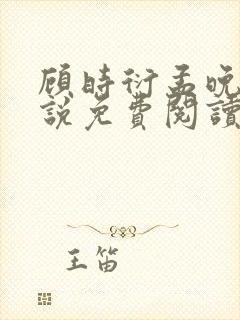 顾時衍孟晚
說免費閱讀
王笛